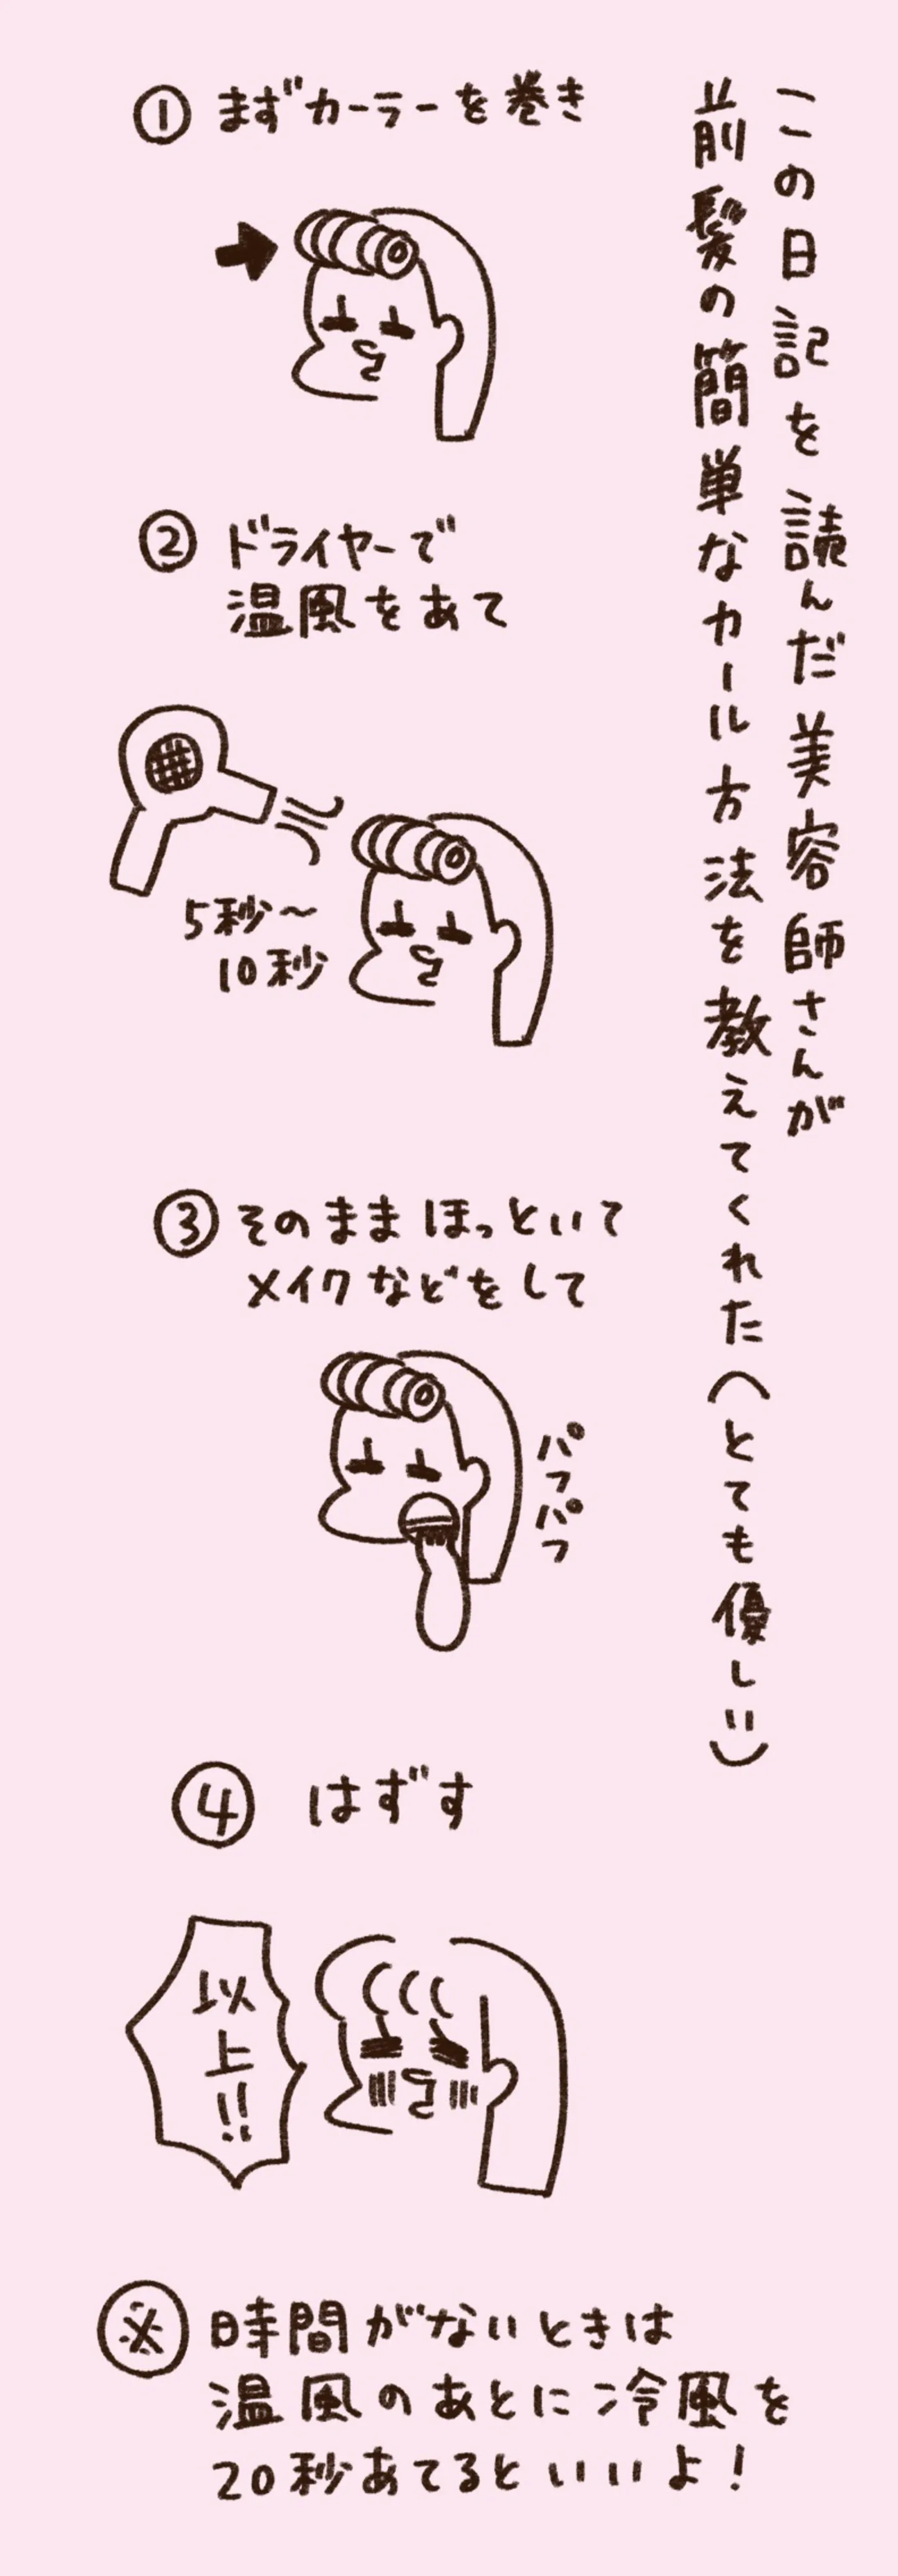 この日記を読んだ美容師さんが
前髪の簡単なカール方法を教えてくれた(とても優しい)
① まずカーラーを巻き
② ドライヤーで
温風をあて
5秒〜
10秒
③ そのままほっといて
メイクなどをして
パフパフ
④ はずす
以上!!
※ 時間がないときは
温風のあとに冷風を
20秒あてるといいよ!